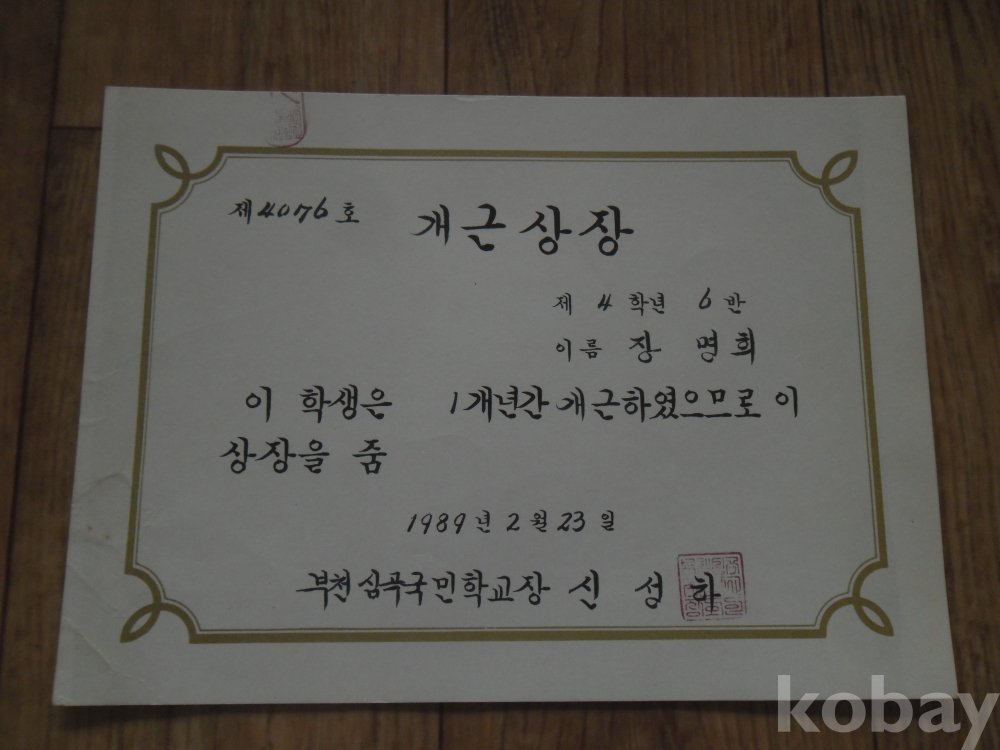 제4076호
개근상장
제 4 학년 6 반
이름 장 명희
이 학생은 1개년간 개근하였으므로 이
상장을 줌
1989년 2월 23일
부천심곡국민학교장 신 성 하
kobay